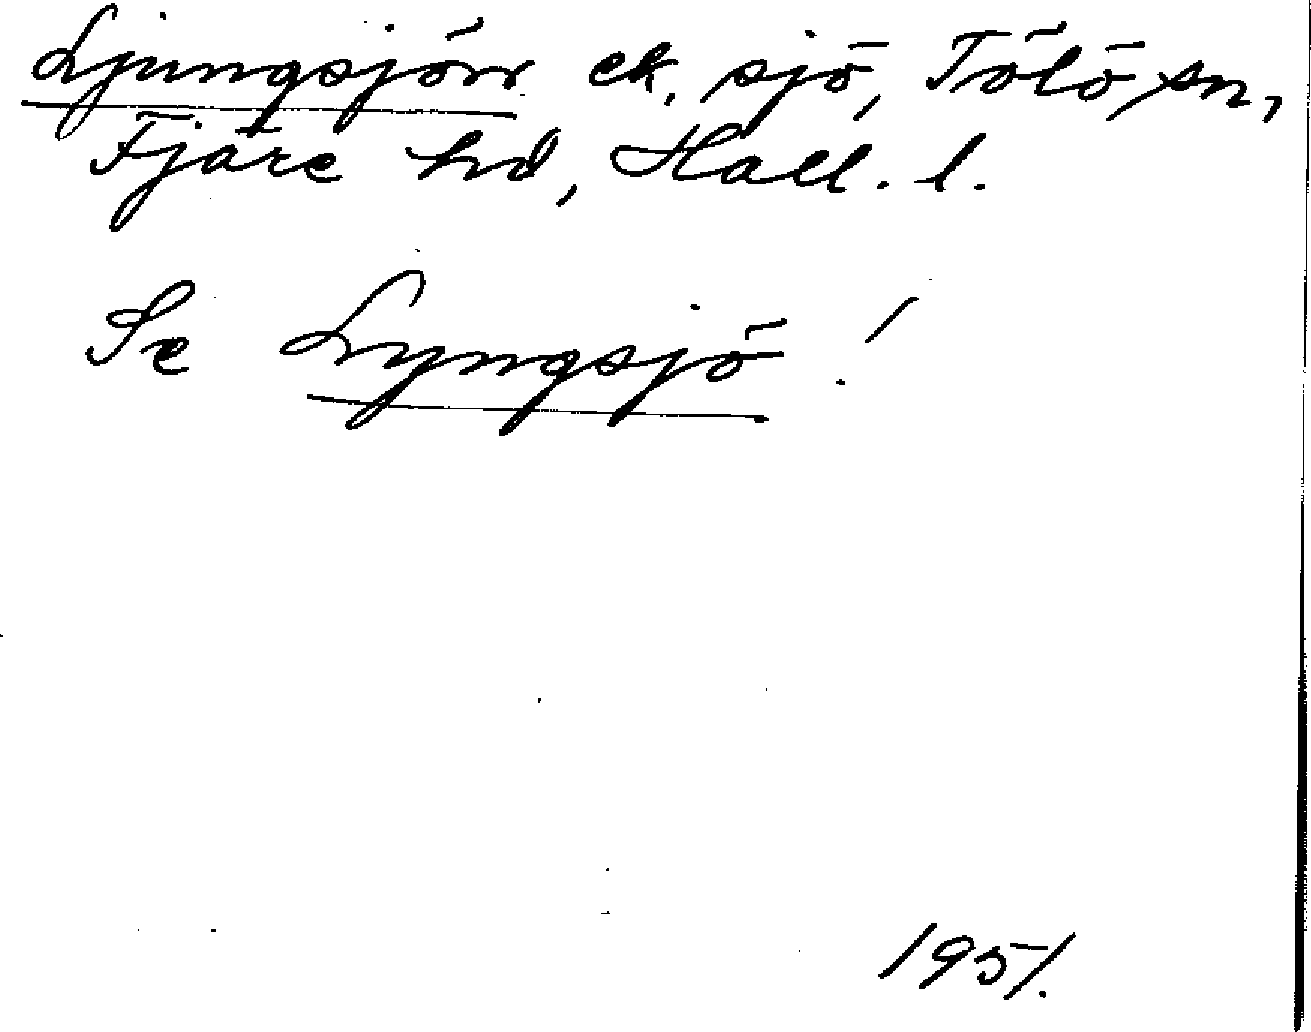 Ljungsjön ek. sjö, Tölö sn,
Fjäre hd, Hall. l.
Se Lyngsjö!
1951.